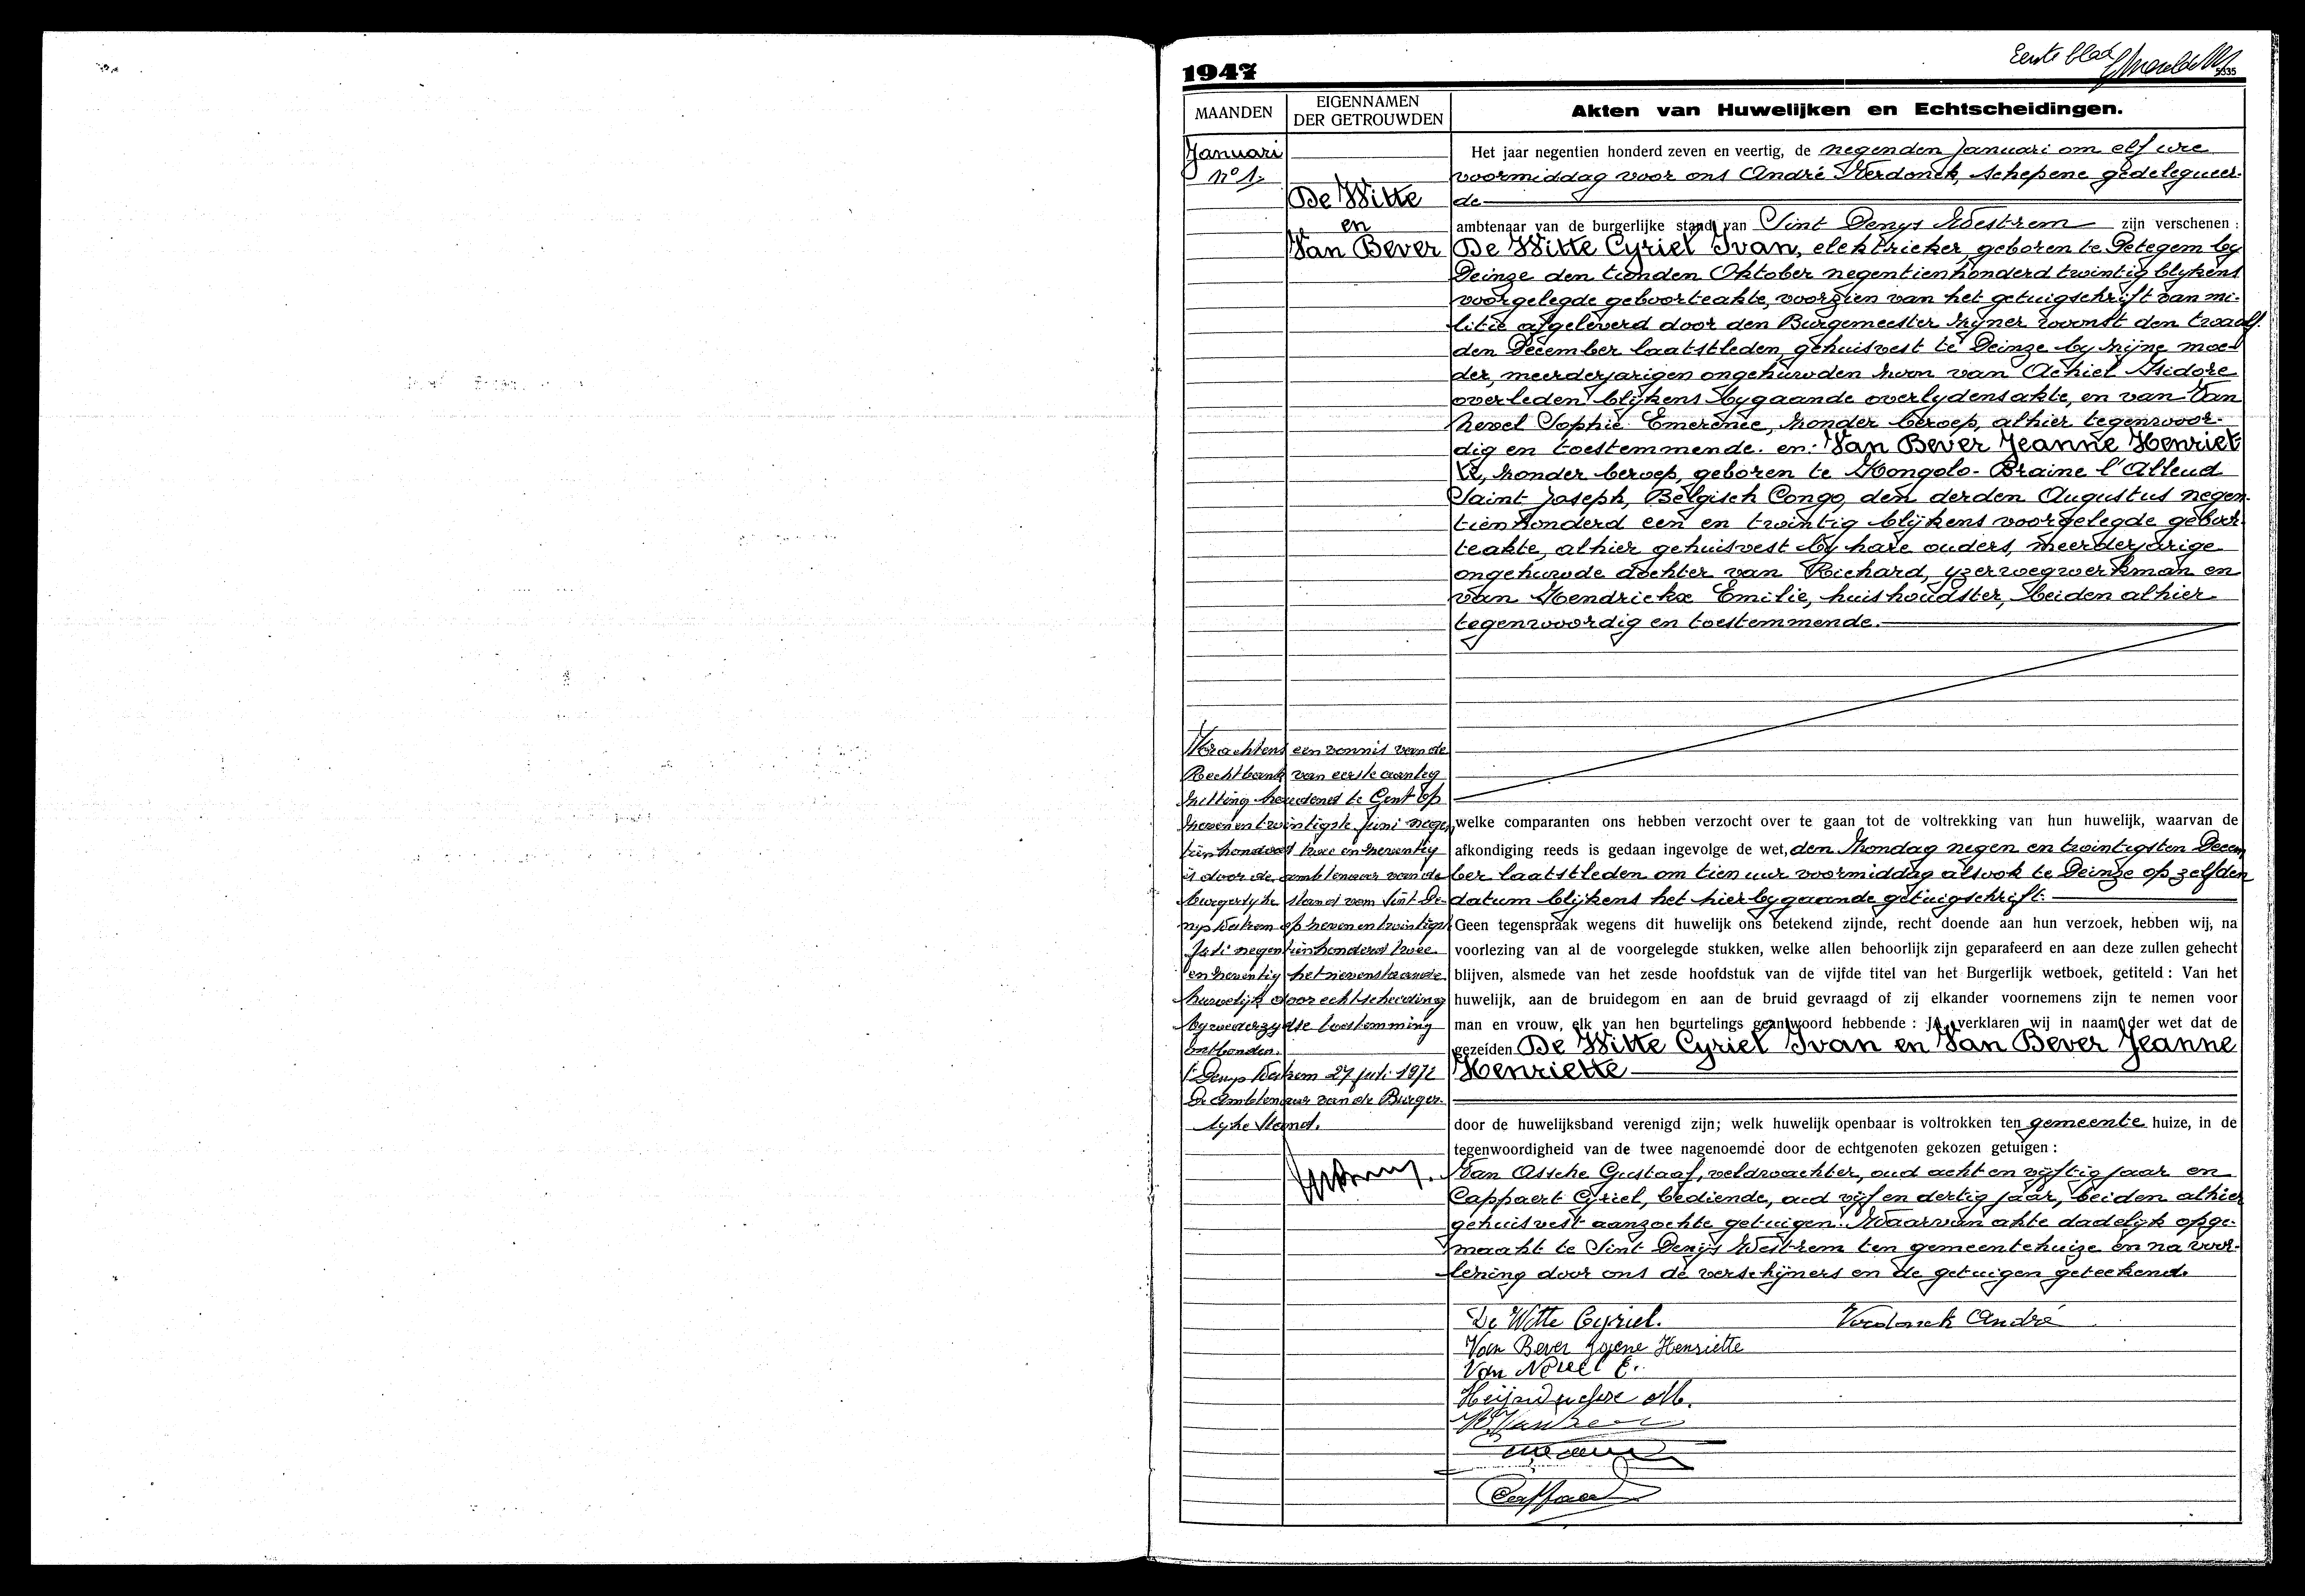 Eerste blad
5335
1947
MAANDEN
EIGENNAMEN
DER GETROUWDEN
Akten van Huwelijken en Echtscheidingen.
Januari
nº 1.
De Witte
en
Van Bever
Het jaar negentien honderd zeven en veertig, de negenden Januari om elf ure
voormiddag voor ons André Verdonck, schepene gedelegueer-
de
ambtenaar van de burgerlijke stand van Sint Denys Westrem zijn verschenen :
De Witte Cyriel Ivan, elektrieker, geboren te Petegem by
Deinze den tienden Oktober negentienhonderd twintig blykens
voorgelegde geboorteakte, voorzien van het getuigschrift van mi-
litie afgeleverd door den Burgemeester zyner woonst den twaalf-
den December laatstleden, gehuisvest te Deinze by zijne moe-
der, meerderjarigen ongehuwden zoon van Achiel Isidore
overleden blijkens bygaande overlydensakte, en van Van
Nevel Sophie Emerence, zonder beroep, alhier tegenwoor-
dig en toestemmende. en: Van Bever Jeanne Henriet
te, zonder beroep, geboren te Kongolo-Braine l'Alleud
Saint Joseph, Belgisch Congo, den derden Augustus negen-
tienhonderd een en twintig blijkens voorgelegde geboor-
teakte, alhier gehuisvest by hare ouders, meerderjarige
ongehuwde dochter van Richard, yzerwegwerkman en
van Hendrickx Emilie, huishoudster, beiden alhier
tegenwoordig en toestemmende.
Krachtens een vonnis van de
Rechtbank van eerste aanleg
zitting houdend te Gent op
zevenentwintigste juni negen
tienhonderd twee en zeventig
is door de ambtenaar van de
burgerlyke stand van Sint De-
nys Westrem op zevenentwintigst
Juli negentienhonderd twee
en zeventig het nevenstaande
huwelijk door echtscheiding
by wederzydse toestemming
ontbonden.
St Denys Westrem 27 juli 1972
De Ambtenaar van de Burger-
lyke Stand.
welke comparanten ons hebben verzocht over te gaan tot de voltrekking van hun huwelijk, waarvan de
afkondiging reeds is gedaan ingevolge de wet, den Zondag negen en twintigsten Decem
ber laatstleden om tien uur voormiddag alsook te Deinze op zelfden
datum blijkens het hierbygaande getuigschrift.
Geen tegenspraak wegens dit huwelijk ons betekend zijnde, recht doende aan hun verzoek, hebben wij, na
voorlezing van al de voorgelegde stukken, welke allen behoorlijk zijn geparafeerd en aan deze zullen gehecht
blijven, alsmede van het zesde hoofdstuk van de vijfde titel van het Burgerlijk wetboek, getiteld : Van het
huwelijk, aan de bruidegom en aan de bruid gevraagd of zij elkander voornemens zijn te nemen voor
man en vrouw, elk van hen beurtelings geantwoord hebbende : JA, verklaren wij in naam der wet dat de
gezeiden De Witte Cyriel Ivan en Van Bever Jeanne
Henriette
door de huwelijksband verenigd zijn; welk huwelijk openbaar is voltrokken ten gemeente huize, in de
tegenwoordigheid van de twee nagenoemde door de echtgenoten gekozen getuigen :
Van Assche Gustaaf, veldwachter, oud acht en vyftig jaar en
Cappaert Cyriel, bediende, oud vijf en dertig jaar, beiden alhier
gehuisvest aanzochte getuigen. Waarvan akte dadelyk opge-
maakt te Sint Denijs Westrem ten gemeentehuize en na voor-
lezing door ons de verschijners en de getuigen geteekend.
De Witte Cyriel.
Verdonck André
Van Bever Jeane Henriette
Van Nevel E.